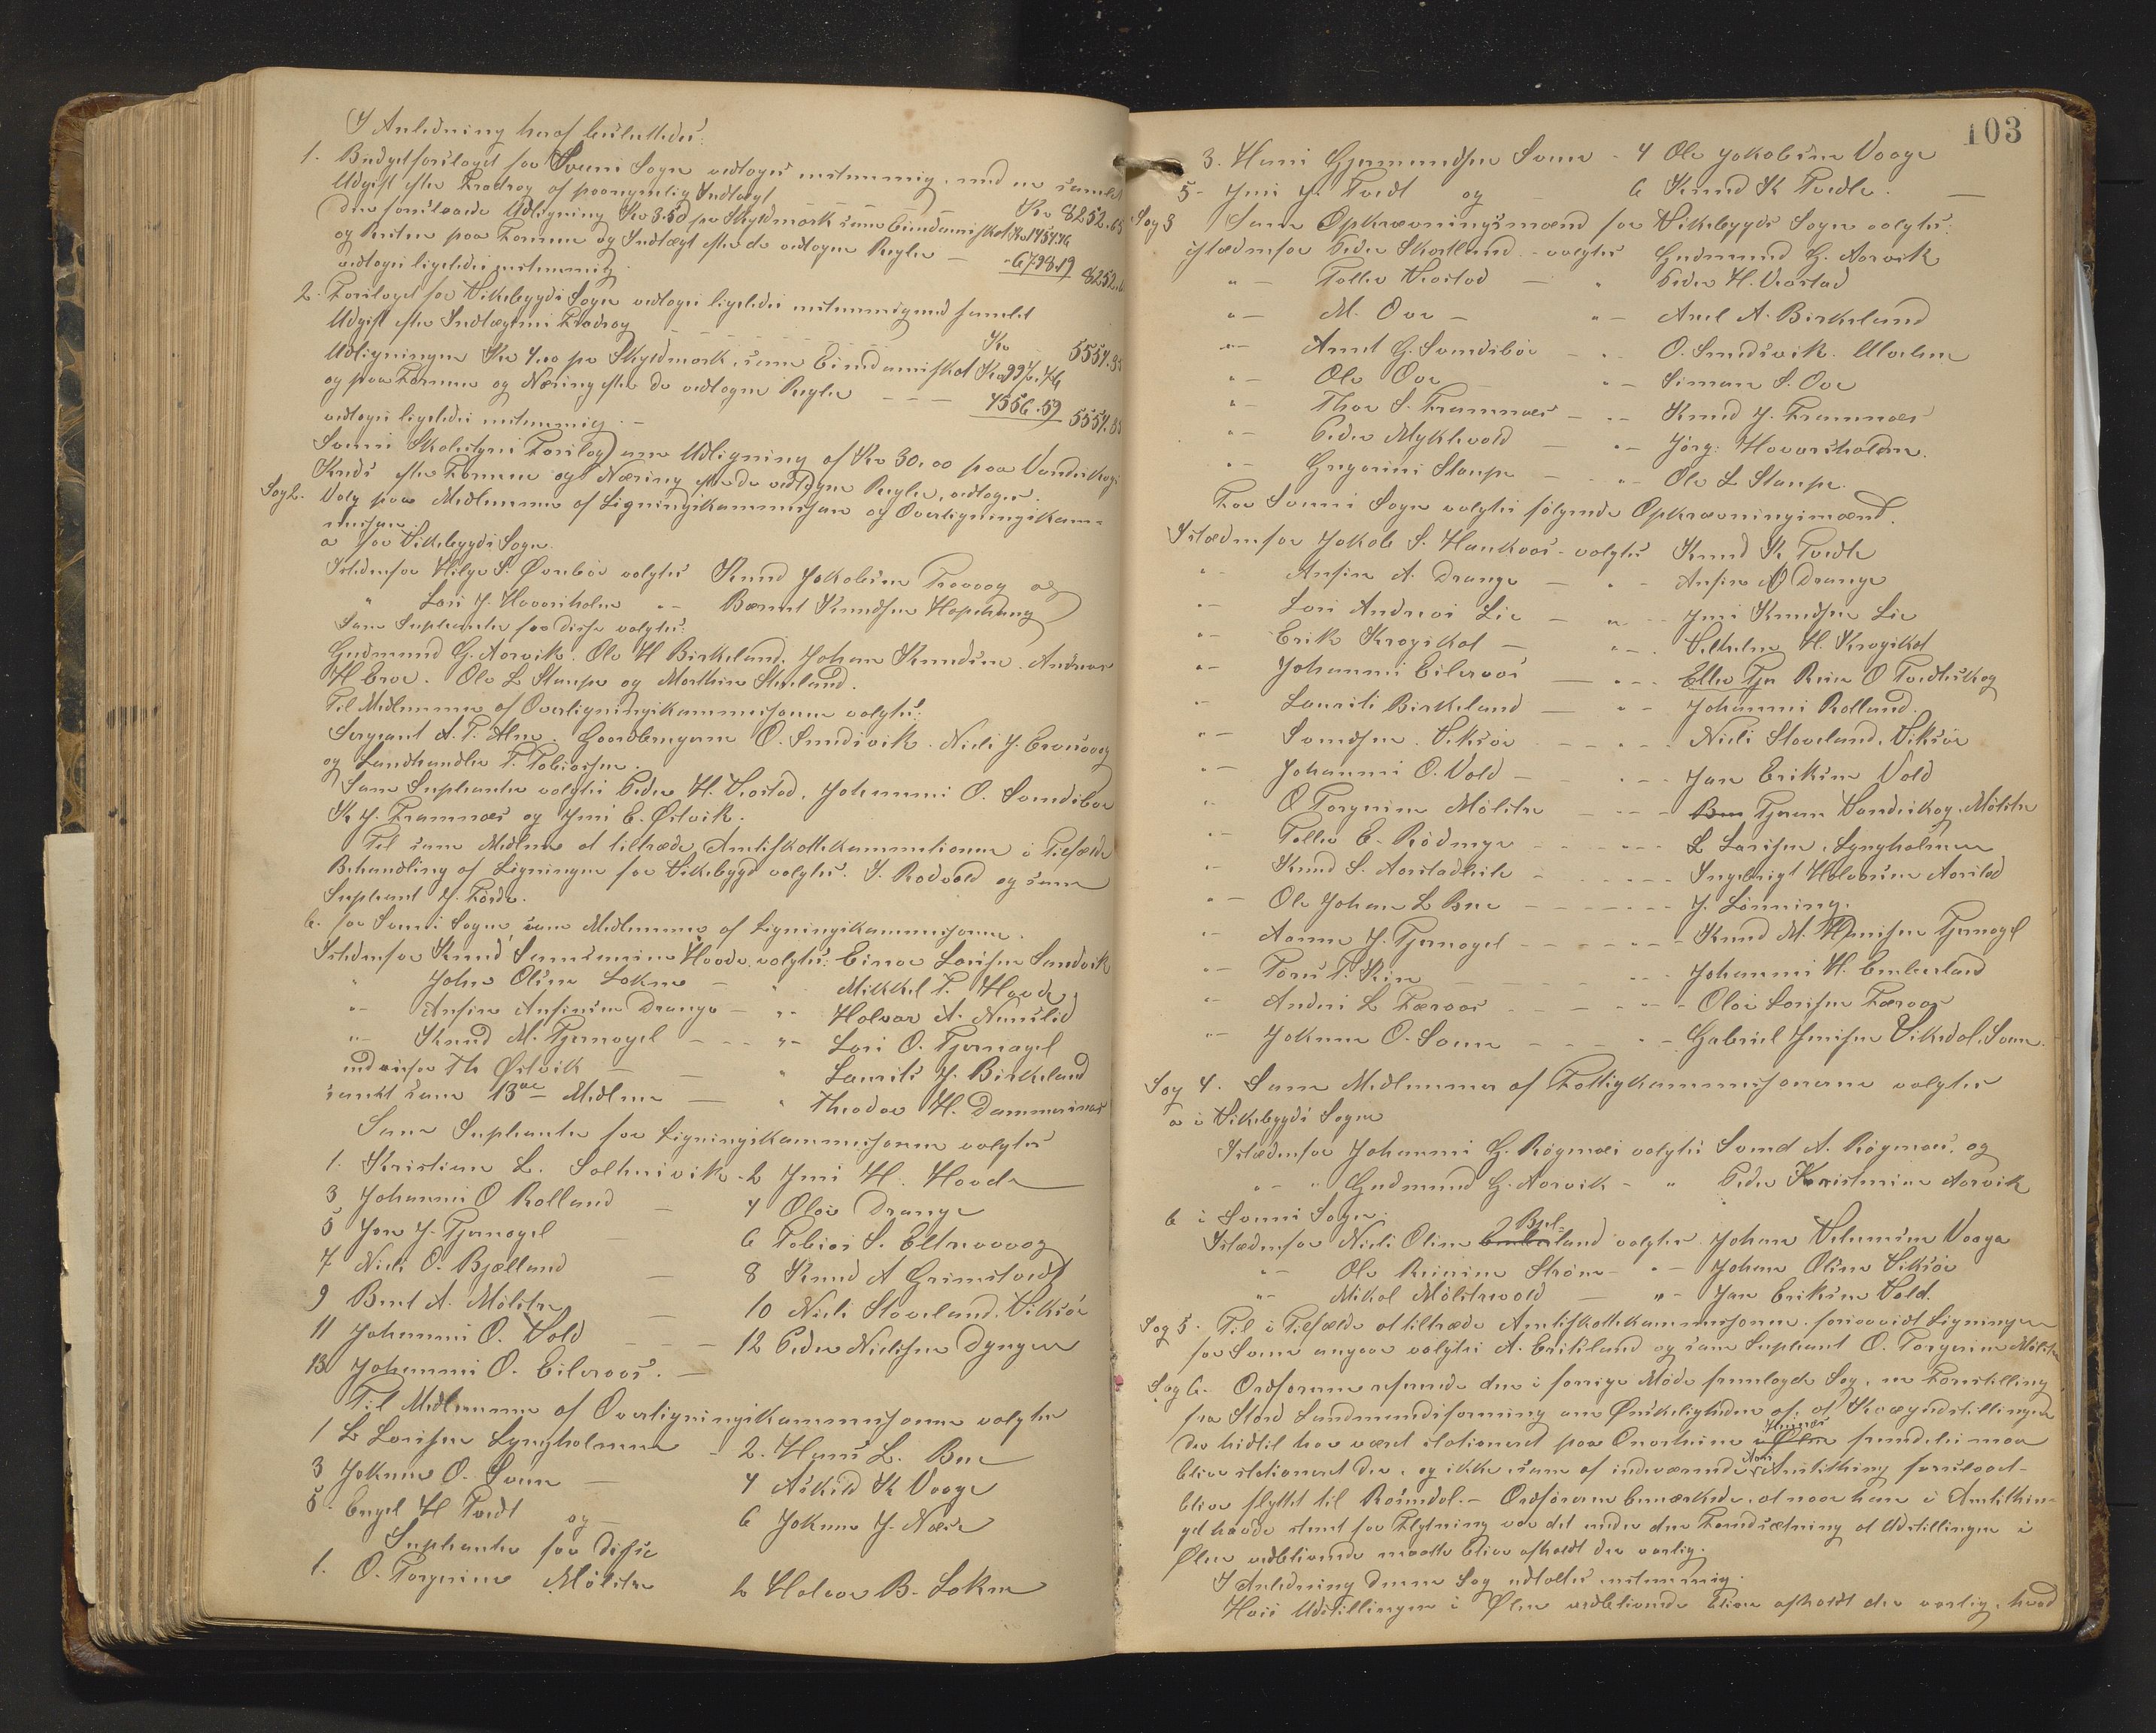 I Anledning heraf besluttedes:
1. Budgetforslaget for Sveens Sogn vedtoges enstemmig, med en samlet
Udgift efter Fradrag af paaregnelig Indtægt Kr 8252.65
den foreslaaede Udligning Kr 3.50 pr Skyldmark som Eiendomsskat Kr 1454.46
og Resten paa Formue og Indtægt efter de vedtagne Regler — " 6798.19 8252.6
vedtoges ligeledes enstemmig.
2. Forslaget for Vikebygds Sogn vedtoges ligeledes enstemmig med samlet
Udgift efter Indtægternes Fradrag Kr 5554.35
Udligningen Kr 4.00 pr Skyldmark, som Eiendomsskat Kr 997.76
og paa Formue og Næring efter de vedtagne Regler — — — 4556.59 5554.35
vedtoges ligeledes enstemmig. —
Sveens Skolestyres Forslag om Udligning af Kr 30.00 paa Vandaskogs
Kreds efter Formue og Næring efter de vedtagne Regler, vedtoges.
Sag 2. Valg paa Medlemmer af Ligningskommisjon og Overligningskom-
misjon.
a for Vikebygds Sogn.
Istedenfor Helge S. Ørebør valgtes Knud Jakobsen Traavaag og
" Lars J. Haavarsholm " — Bernt Knudsen Hapchaug
Som Suplianter for disse valgtes:
Gudmund G. Aarvik. Ole H Birkeland. Johan Knudsen. Andreas
H Eroe. Ole L Staupe og Marthin Skeeland.
Til Medlemmer af Overligningskommisjonen valgtes:
Sergeant A. T. Alne. Gaardbrugerne O. Sundsvik. Niels J. Ervesvaag
og Landhandler T. Tobiassen.
Som Suplianter valgtes Peder H. Vestad, Johannes O. Svendsbøe
K. J. Framnæs og Jens E. Østvik.
Til som Medlem at tiltræde Amtsskattekommitionen i Tilfælde
Behandling af Ligningen for Vikebygd valgtes. S. Rødvold og som
Supliant J. Førde.
b. for Sveens Sogn, som Medlemmer af Ligningskommisjonen.
Istedenfor Knud Samsonsen Hovde, valgtes: Einar Larsen Sandvik
" John Olsen Lokna — " Mikkel T. Hovde
" — Ansten Anstensen Drange — " — Halvor A. Nonslid
" — Knud M. Tjernagel — — — " — Lars O. Tjernagel
indvisfor Th Østvik — — " Laurits J. Birkeland
samt som 13de Medlem — " Theodor H. Dommersnæs
Som Suplianter for Ligningskommisjonen valgtes
1. Kristian L. Saltnesvik - 2 Jens H. Hovde
3 Johannes O Rolland — 4 Olai Drange
5 Jon J. Tjernagel — 6 Tobias S. Eltravaag
7 Niels O. Bjelland — 8 Knud A Grimstvedt
9 Bent A. Mølster — 10 Niels Staveland, Viksør
11 Johannes O. Vold — — 12 Peder Nielsen Dyngen
13 Johannes O. Eileraas. —
Til Medlemmer af Overligningskommisjonen valgtes
1 L Larsen Lyngholmen - 2. Hans L. Boe
3 Jokum O. Sveen — 4 Askild K Vaage
5. Engel H Tvedt og — 6 Jokum J. Næse
Suplianter for disse
1. O. Torgersen Mølster 2 Halvor B. Lokna
103
3. Hans Gjermundsen Sveen - 4 Ole Jakobsen Vaage
5 - Jens J. Tvedt og 6 Knud K Tvedte. —
Sag 3 Som Opkrævningsmænd for Vikebygds Sogn valgtes:
istedenfor Peder Skartland - valgtes Gudmund G. Aarvik
" — Tollev Vestad — " Peder H. Vestad
" — M. Ove — " — Axel A. Birkeland
" — Arent G. Svendsbøe — " — O. Sundsvik. Ulveln
" — Ole Ove — " — Simon S. Ove
" — Thor S. Framnæs — " — Knud J. Framnæs
" — Peder Mykhevold — " — Jörg. Haavarsholm.
" — Gregorius Staupe — " — Ole L Staupe.
For Sveens Sogn valgtes følgende Opkrævningsmænd.
Istedenfor Jakob S. Haukaas - valgtes Knud K. Tvedte
" — Ansten A. Drange — " Ansten A Drange
" — Lars Andreas Lie — " — Jens Knudsen Lie
" — Erik Krogskot — " — Vilhelm H. Krogskot
" — Johannes Eileraas — " — Elles Tjer Rein O Tvedteskog
" — Laurits Birkeland — " — Johannes Rolland.
" — Svendsen. Viksør — — " — Niels Staveland, Viksør
" — Johannes O. Vold — — " — Jan Eriksen Vold
" — O Torgersen Mølster — — " — Tjeran Vandeskog. Mølster
" — Tollev E. Rödmyr — — " — L Larsen, Lyngholmen
" — Knud S. Aarstadlie — — " — Ingebrigt Halvorsen Aarstad
" — Ole Johan L Boe — — " — J. Lönning.
" — Aanen J. Tjernagel — — — — Knud M. Hansen Tjernagel
" — Torris T. Rein — — " — Johannes H. Emberland
" — Anders L Færaas — — " — Olai Larsen Færaas
" — Jokum O. Sveen — — " — Gabriel Jensen Vikedal. Sveen.
Sag 4. Som Medlemmer af Fattigkommisjonerne valgtes
a i Vikebygds Sogn
Istedenfor Johannes G. Røgenæs valgtes Svend A. Røgenæs, og
" — " Gudmund G. Aarvik — " Peder Kristensen Aarvik
b i Sveens Sogn.
Istedenfor Niels Olsen Bjelland valgtes Johan Velemsen Vaaga
" — Ole Reinsen Strøm — " — Johan Olsen Viksør
" — Mikal Mölstrevold — " — Jan Eriksen Vold.
Sag 5. Til i Tilfælde at tiltræde Amtsskattekommisjonen, forsaavidt Ligningen
for Sveen angaar valgtes A. Eritsland og som Supliant O. Torgersen Mölster
Sag 6. Ordføreren refererede den i forrige Møde fremlagde Sag, en Forestilling
fra Stord Landmandsforening om Ønskeligheden af, at Kvægudstillingen
der hidtil har været stationeret paa fremdeles maa
blive stationeret der, og ikke som af indeværende Aars Amtsthing foreslaaet
blive flyttet til Rosendal. — Ordføreren bemærkede, at naar han i Amtsthin-
get havde stemt for Flytning var det under den Forudsætning at Udstillingen i
Ølen vedblivende maatte blive afholdt der aarlig.
I Anledning denne Sag udtaltes enstemmig.
Hvis Udstillingen i Ølen vedblivende bliver afholdt der aarlig, hvad